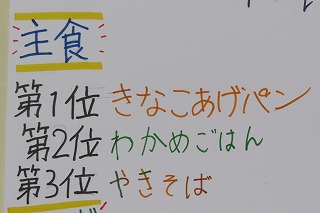 主食
第1位 きなこあげパン
第2位 わかめごはん
第3位 やきそば